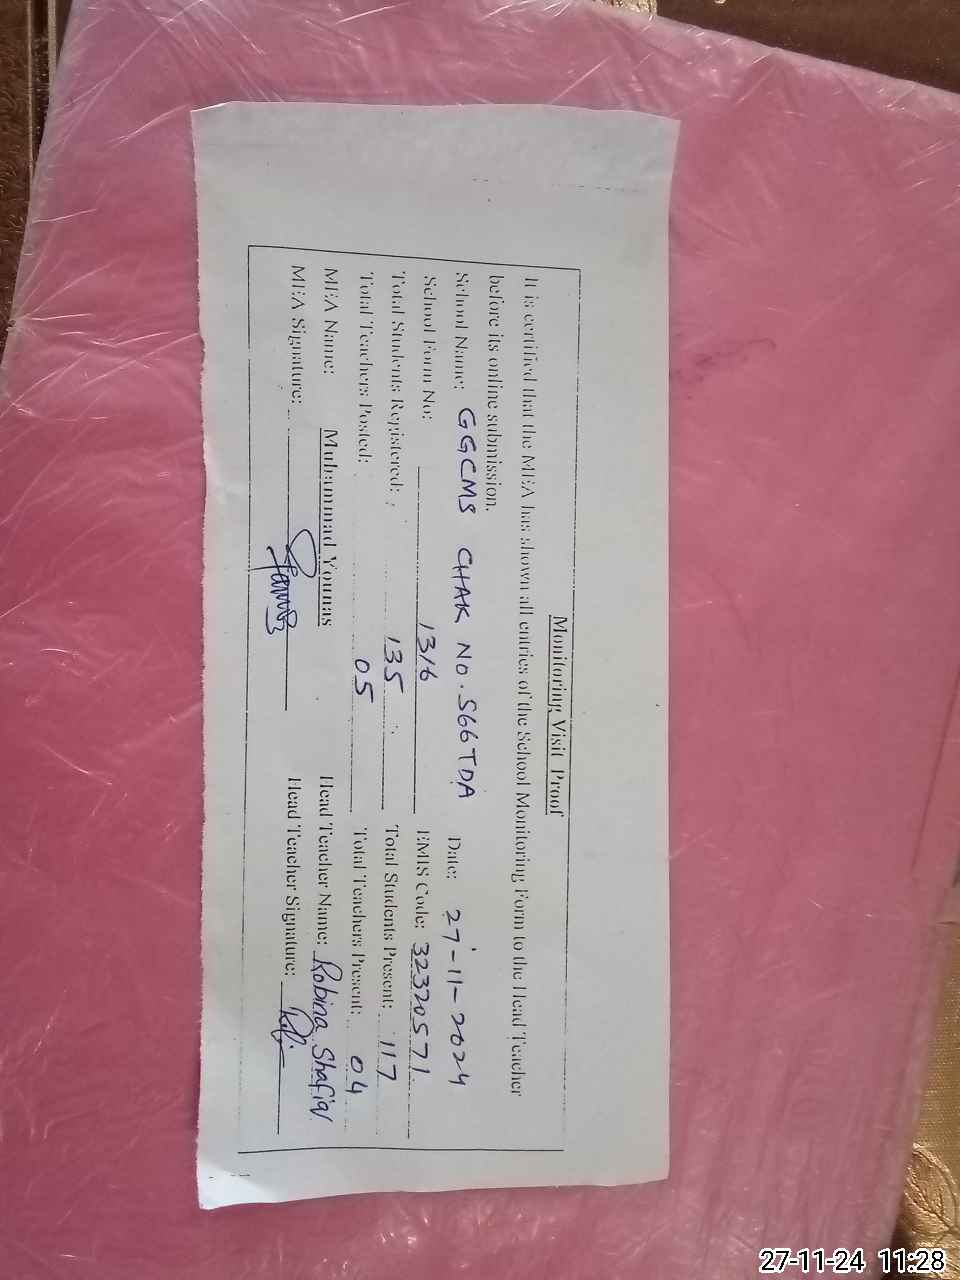 Monitoring Visit Proof
It is certified that the MEA has shown all entries of the School Monitoring Form to the Head Teacher
before its online submission.
School Name: GGCMS CHAK NO. 566 TDA Date: 27-11-2024
School Form No: 1316 EMIS Code: 32320571
Total Students Registered: 135 Total Students Present: 117
Total Teachers Posted: 05 Total Teachers Present: 04
MEA Name: Muhammad Younas Head Teacher Name: Robina Shafiq
MEA Signature: Head Teacher Signature:
27-11-24 11:28